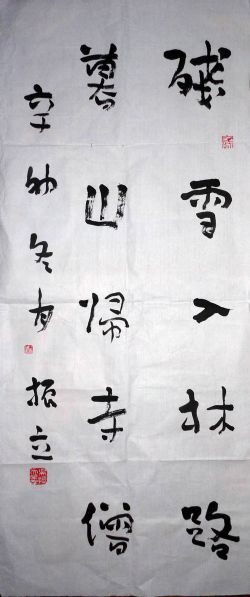 残雪入林路
暮山帰寺僧
辛卯冬振立